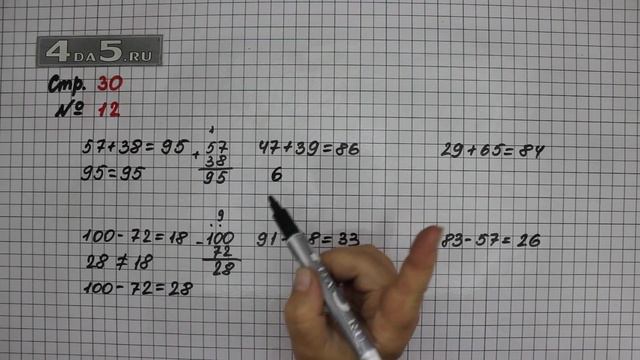 4DA5.RU
Стр. 30
№ 12
57+38=95
95=95
+ 57
38
95
47+39=86
6
29+65=84
100-72=18
28≠18
100-72=28
9
- 100
72
28
91- 8=33
83-57=26